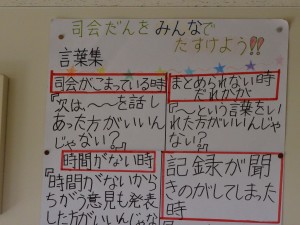 司会だんをみんなで
たすけよう!!
言葉集
司会がこまっている時
『次は、〜〜を話し
あった方がいいんじ
ゃない?』
時間がない時
『時間がないから
ちがう意見も発表
した方がいいんじゃな
まとめられない時
だれかが
『〜という言葉をい
れた方がいいんじゃ
ない?』
記録が聞
きのがしてしまった
時